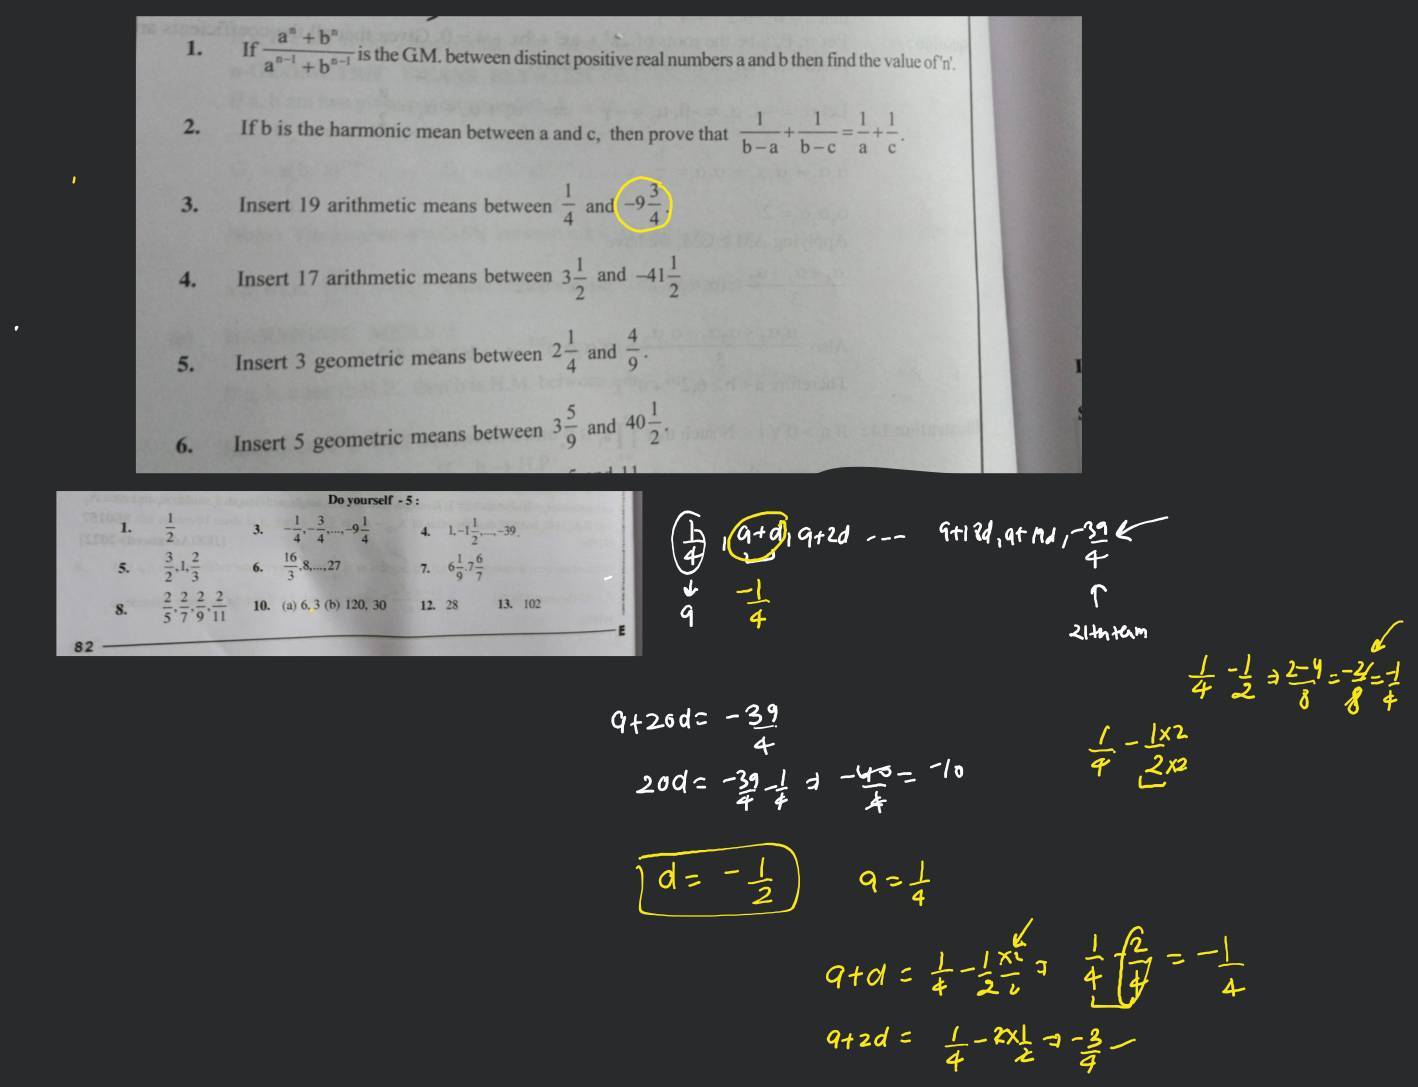 1. If (aⁿ + bⁿ)/(aⁿ⁻¹ + bⁿ⁻¹) is the G.M. between distinct positive real numbers a and b then find the value of 'n'.
2. If b is the harmonic mean between a and c, then prove that 1/(b–a) + 1/(b–c) = 1/a + 1/c.
3. Insert 19 arithmetic means between 1/4 and –9 3/4.
4. Insert 17 arithmetic means between 3 1/2 and –41 1/2
5. Insert 3 geometric means between 2 1/4 and 4/9.
6. Insert 5 geometric means between 3 5/9 and 40 1/2.
Do yourself - 5 :
1. 1/2 3. –1/4, –3/4, ..., –9 1/4 4. 1, –1 1/2, ..., –39
5. 3/2, 1, 2/3 6. 16/3, 8, ..., 27 7. 6 1/9, 7 6/7
8. 2/5, 2/7, 2/9, 2/11 10. (a) 6, 3 (b) 120, 30 12. 28 13. 102
82
E
1/4, a+d, a+2d --- a+18d, a+19d, -39/4
a -1/4
21th term
1/4 - 1/2 ⇒ 2-4/8 = -2/8 = -1/4
1/4 - 1×2/2×2
a+20d = -39/4
20d = -39/4 - 1/4 ⇒ -40/4 = -10
d = -1/2 a = 1/4
a+d = 1/4 - 1/2 ×2/2 ⇒ 1/4 - 2/4 = -1/4
a+2d = 1/4 - 2×1/2 ⇒ -3/4